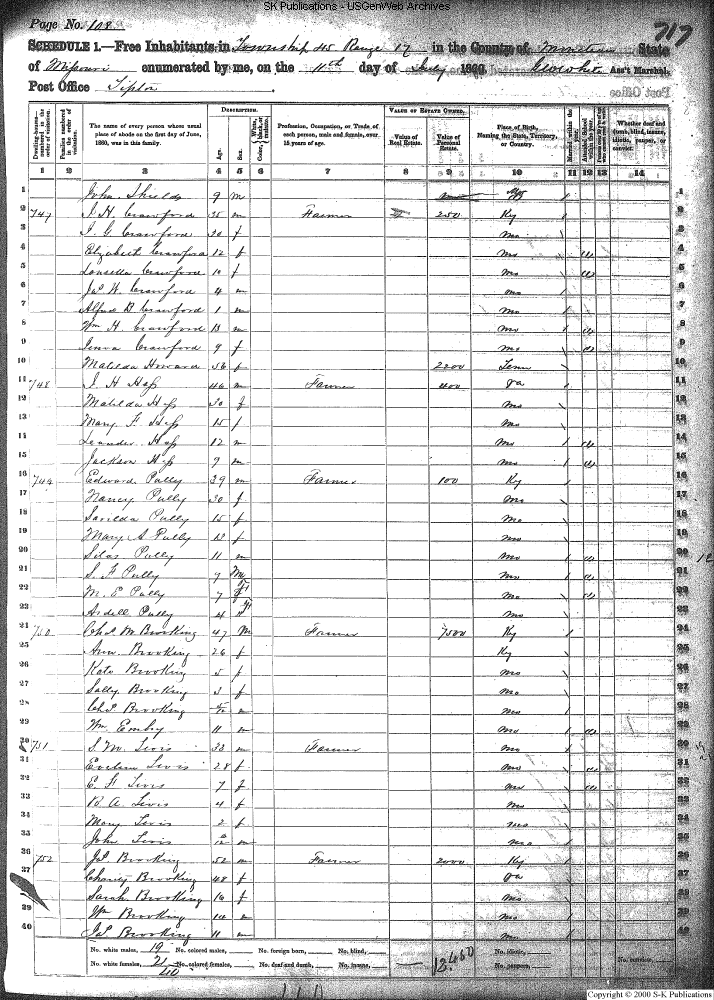 SK Publications - USGenWeb Archives
Page No. 108
717
SCHEDULE 1.—Free Inhabitants in Township 45 Range 17 in the County of Moniteau State
of Missouri enumerated by me, on the 11th day of July 1860. Geo White Ass't Marshal.
Post Office Tipton
Dwelling-houses— numbered in the order of visitation.
Families numbered in the order of visitation.
The name of every person whose usual place of abode on the first day of June, 1860, was in this family.
DESCRIPTION.
Age.
Sex.
Color, White, black, or mulatto.
Profession, Occupation, or Trade of each person, male and female, over 15 years of age.
VALUE OF ESTATE OWNED.
Value of Real Estate.
Value of Personal Estate.
Place of Birth, Naming the State, Territory, or Country.
Married within the year.
Attended School within the year.
Whether deaf and dumb, blind, insane, idiotic, pauper, or convict.
1 2 3 4 5 6 7 8 9 10 11 12 13 14
1 John Shields 9 m Mo 1
2 747 J. H. Crawford 35 m Farmer 250 Ky 2
3 J. G. Crawford 30 f Mo 3
4 Elizabeth Crawford 12 f Mo 4
5 Crawford 10 f Mo 5
6 Jas W. Crawford 4 m Mo 6
7 Alfred B Crawford 1 m Mo 7
8 Wm H. Crawford 13 m Mo 8
9 Crawford 9 f Mo 9
10 Matilda Howard 56 f 2200 Tenn 10
11 748 J. H. Hess 46 m Farmer 400 Va 11
12 Matilda Hess 30 f Mo 12
13 Mary F. Hess 15 f Mo 13
14 Leander Hess 12 m Mo 14
15 Jackson Hess 9 m Mo 15
16 749 Edward Pully 39 m Farmer 100 Ky 16
17 Nancy Pully 30 f Mo 17
18 Sarilda Pully 15 f Mo 18
19 Mary A Pully 13 f Mo 19
20 Silas Pully 11 m Mo 20
21 S. F. Pully 9 M Mo 21
22 M. E Pully 7 f Mo 22
23 Ardell Pully 4 Mo 23
24 750 Chs M. Brooking 47 M Farmer 7500 Ky 24
25 Ann Brooking 26 f Ky 25
26 Kate Brooking 5 f Mo 26
27 Sally Brooking 3 f Mo 27
28 Chs. Brooking m Mo 28
29 Wm Embry 11 m Mo 29
30 751 S. M. Levis 33 m Farmer Mo 30
31 Evelina Levis 28 f Mo 31
32 E. F. Levis 7 f Mo 32
33 B. A. Levis 4 f Mo 33
34 Mary Levis 2 f Mo 34
35 John Levis m Mo 35
36 752 Js Brooking 52 m Farmer 2000 Ky 36
37 Charity Brooking 48 f Va 37
38 Sarah Brooking 16 f Mo 38
39 Wm Brooking 14 m Mo 39
40 Js. Brooking 11 m Mo 40
No. white males, 19 No. colored males, No. foreign born, No. blind, 12.460 No. idiotic,
No. white females, 21 No. colored females, No. deaf and dumb, No. insane, No. paupers, No. convicts,
40
Copyright © 2000 S-K Publications